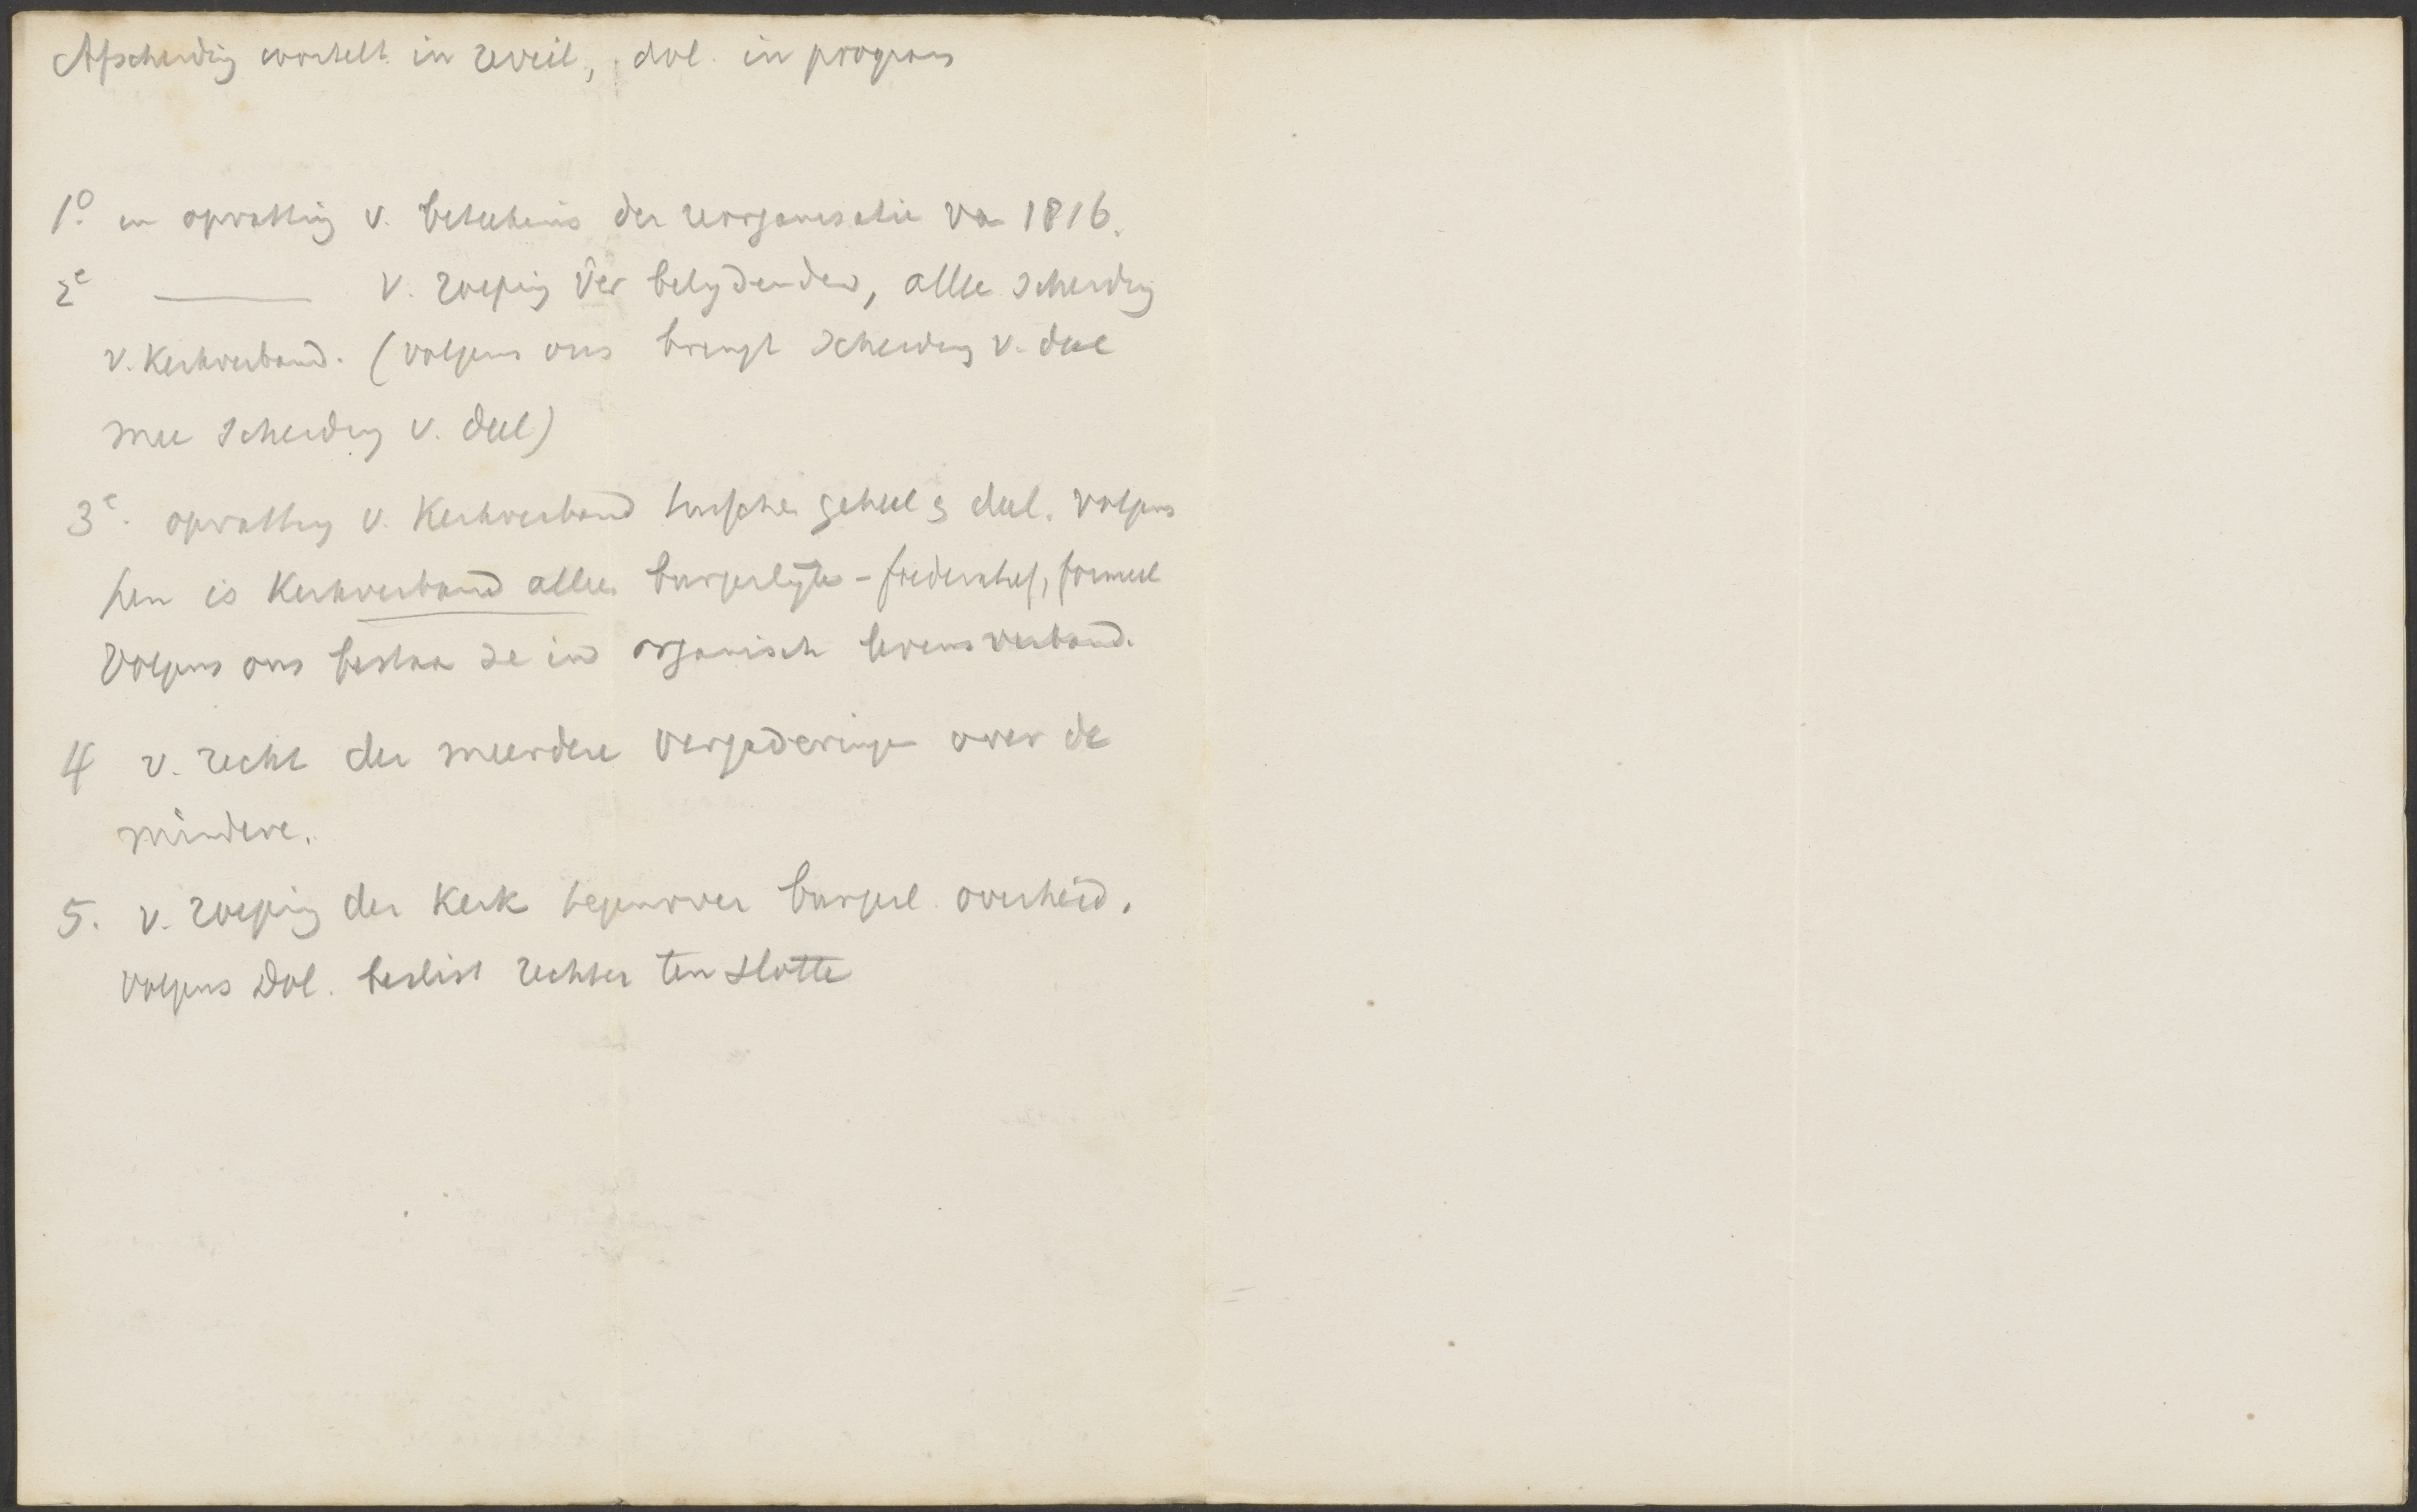 Afscheiding wortelt in reveil, dol. in program
1º. in opvatting v. beteekenis der reorganisatie van 1816.
2e ——— v. roeping der belijdenden, alleen scheiding
v. Kerkverband. (volgens ons brengt scheiding v. deel
mee scheiding v. deel)
3e. opvatting v. Kerkverband tusschen geheel & deel. volgens
hen is Kerkverband alleen burgerlijk - foederatief, formeel
Volgens ons bestaan ze in organisch levensverband.
4 v. recht der meerdere vergaderingen over de
mindere.
5. v. roeping der Kerk tegenover burgerl. overheid.
Volgens Dol. beslist rechter ten slotte